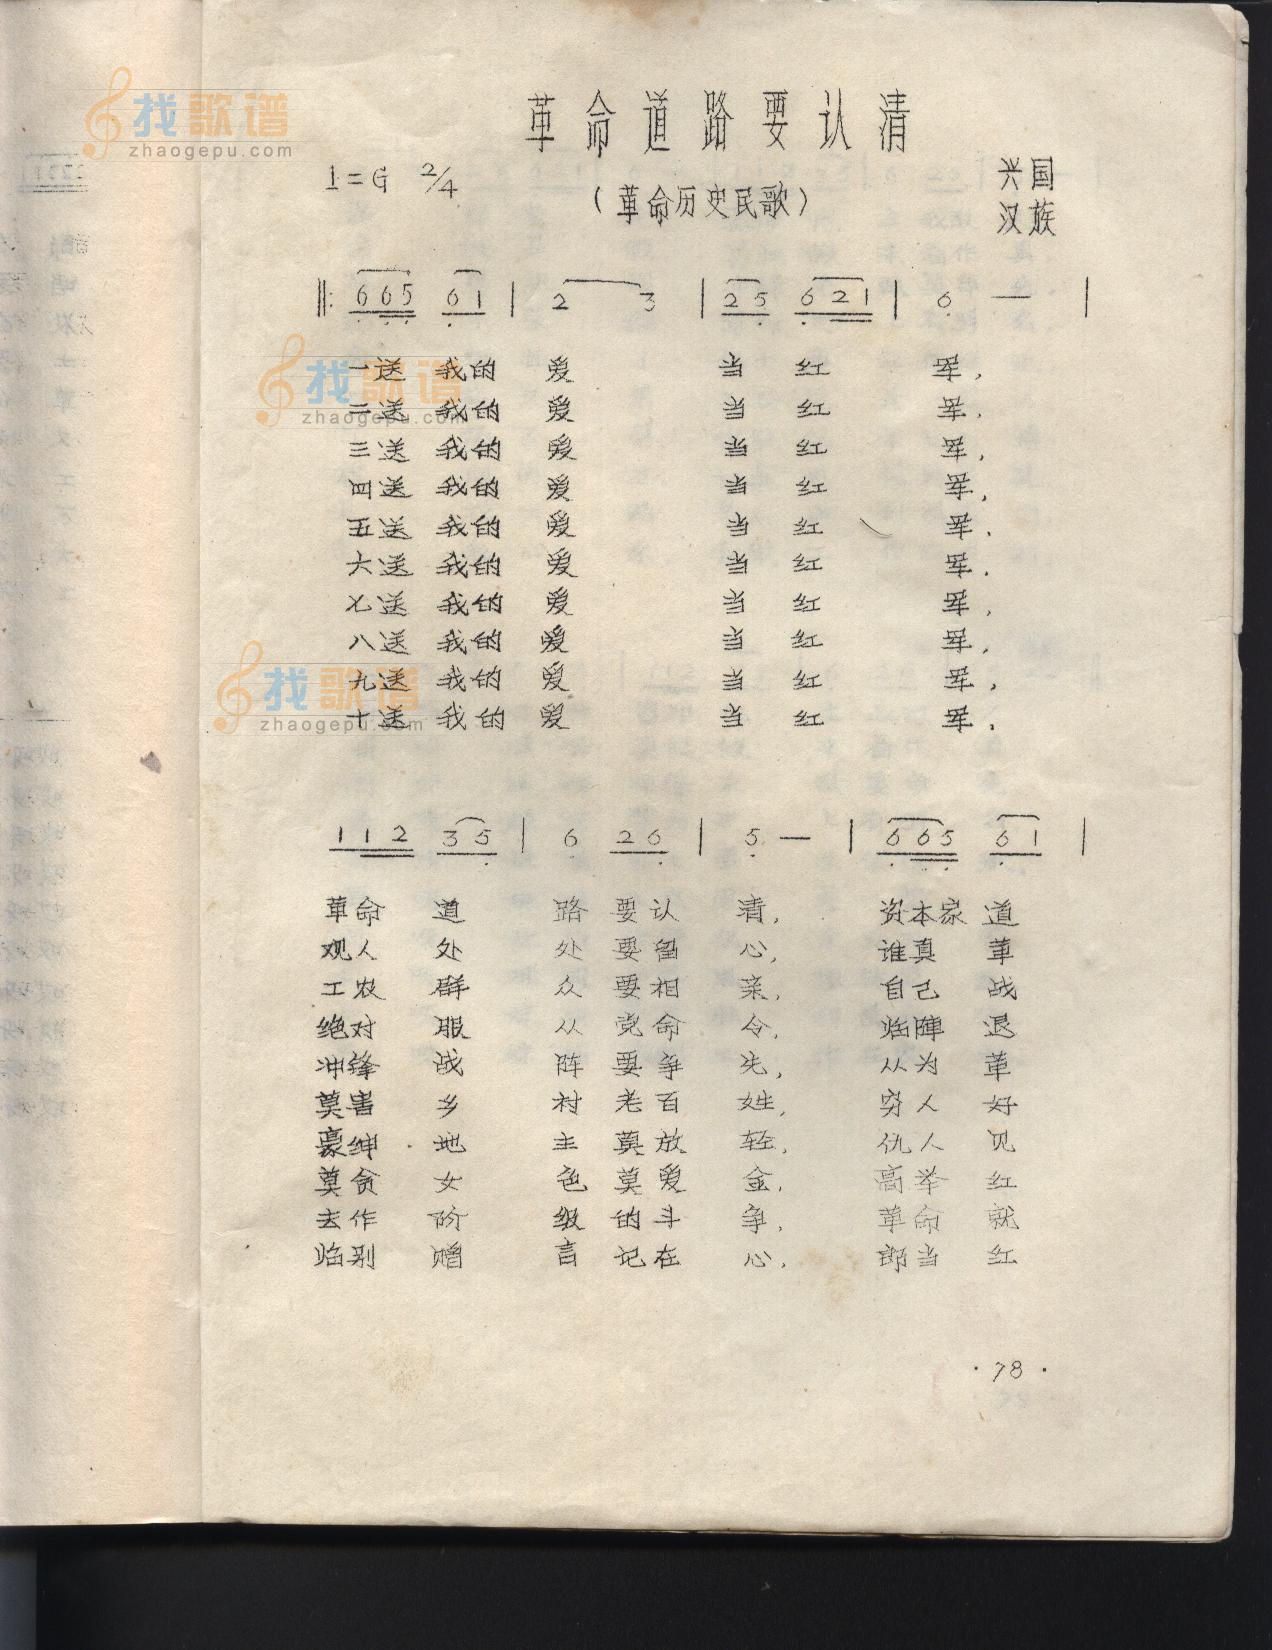 找歌谱
zhaogepu.com
革命道路要认清
1=G 2/4
(革命历史民歌)
兴国
汉族
‖: 665 61 | 2 3 | 25 621 | 6 — |
一送 我的 爱 当 红 军,
二送 我的 爱 当 红 军,
三送 我的 爱 当 红 军,
四送 我的 爱 当 红 军,
五送 我的 爱 当 红 军,
六送 我的 爱 当 红 军,
七送 我的 爱 当 红 军,
八送 我的 爱 当 红 军,
九送 我的 爱 当 红 军,
十送 我的 爱 当 红 军,
找歌谱
zhaogepu.com
找歌谱
zhaogepu.com
112 35 | 6 26 | 5 — | 665 61 |
革命 道 路 要认 清, 资本家 道
观人 处 处 要留 心, 谁真 革
工农 群 众 要相 亲, 自己 战
绝对 服 从 党命 令, 临陣 退
冲锋 战 阵 要争 先, 从为 革
莫害 乡 村 老百 姓, 穷人 好
豪绅 地 主 莫放 轻, 仇人 见
莫贪 女 色 莫爱 金, 高举 红
去作 阶 级 的斗 争, 革命 就
临别 赠 言 记在 心, 郎当 红
·78·